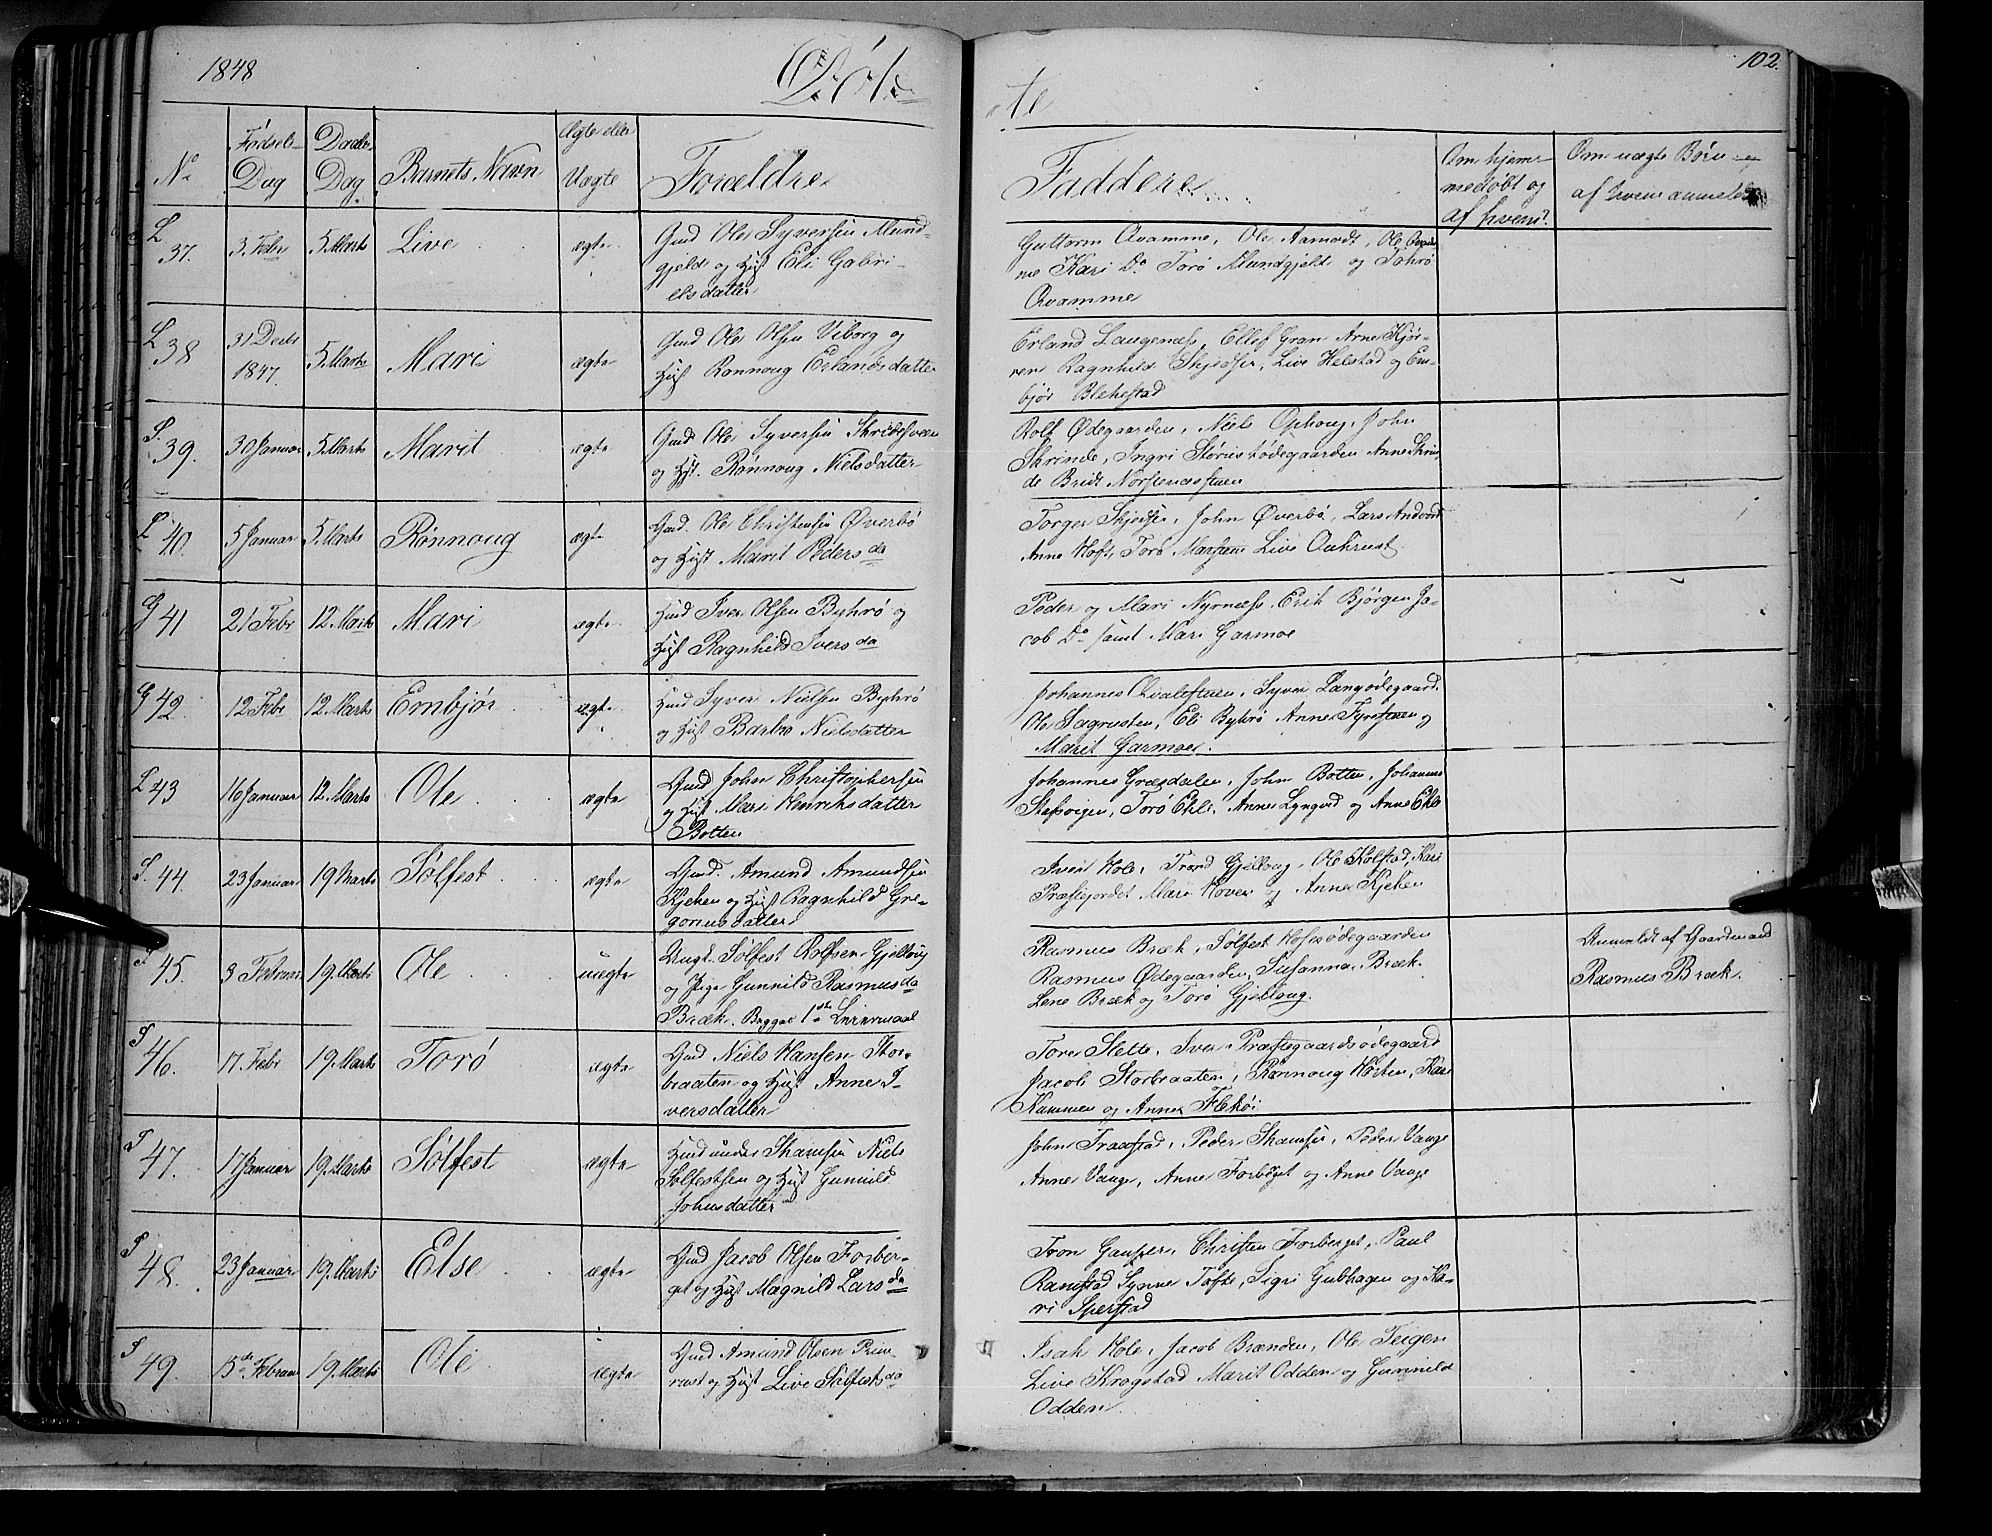 1848
Døb-
te
102.
No
Fødsels-
Dag
Daabs-
Dag
Barnets Navn
Ægte eller
Uægte
Forældre
Faddere
Om hjem-
medøbt og
af hvem?
Om uægte Børn
af hvem anmeldt
L
37.
3 Febr
5 Marts
Live
ægte
Gmd Ole Syversen Mund-
gjeld og Hust Eli Gabri-
elsdatter
Guttorm Qvamme, Ole Aamodt, Ole
me Kari Do Torø Mundgjeld og Johrø
Qvamme
L
38
31 Decbr
1847.
5 Marts
Mari
ægte
Gmd Ole Olsen Viborg og
Hust Rønnoug Erlandsdatter
Erland Laugenæs, Ellef Grøn Anne Kjør-
ren Ragnhild Skjedser, Live Helstad og Em-
bjør Blekestad
S.
39.
30 Januar
5 Marts
Marit
ægte
Gmd Ole Syversen Skridesveen
og Hust. Rønnoug Nielsdatter
Rolf Ødegaarden, Niels Ophoug, John
Skrinde, Ingri Ødegaarden Anne Skrin-
de Brede
L
40.
5 Januar
5 Marts
Rønnoug
ægte
Gmd. Ole Christensen Øverbø
og Hust Marit Peders da
Torger Skjedser, John Øverbø, Lars Andvord
Anne Hoft, Torø Live Aakrust.
G
41
21 Febr
12 Marts
Mari
ægte
Hmd Iver Olsen Byhrø og
Hust Ragnhild Ivers da
Peder og Mari Nyrnæss Erik Bjørgen Ja-
cob Do samt Mari Garmoe
G
42.
12 Febr
12 Marts
Embjør
ægte
Hmd Syver Nielsen Byhrø
og Hust Barbro Nielsdatter
Johannes Syver Langødegaard.
Ole Eli Byhrø Anne og
Marit Garmoe.
L
43
16 Januar
12 Marts
Ole
ægte
Gmd John Christophersen
og Hust Mari Henriksdatter
Botten
Johannes Græsdalen, John Botten, Johannes
Torø Ekle, Anne Lyngved og Anne Ekle
S.
44.
23 Januar
19 Marts
Sølfest
ægte
Gmd. Amund Amundsen
Kjeken og Hust Ragnhild Gre-
goriusdatter
Iver Hole, Trond Gjelloug, Ole Kolstad, Kari
Præstjordet Mari Hoven og Anne Kjeken
S
45.
3 Februar
19 Marts
Ole
uægte
Ungk. Sølfest Rolfsen Gjelloug
og Pige Gunnild Rasmus da
Bræk. Begges 1ste Leiermaal
Rasmus Bræk, Sølfest Hofesødegaarden
Rasmus Ødegaarden, Susanna Bræk.
Lene Bræk og Torø Gjelloug.
Anmeldt af Gaardmand
Rasmus Bræk.
S
46.
17 Febr
19 Marts
Torø
ægte
Gmd Niels Hansen Stor-
braaten og Hust Anne I-
versdatter
Tore Slette, Iver Præstegaardsødegaard
Jacob Storbraaten, Rønnoug Kari
og Anne Flekøi
S
47.
17 Januar
19 Marts
Sølfest
ægte
Hmd under Skamsar Niels
Sølfestsen og Hust Gunnild
Johnsdatter
John Traasstad, Peder Skamsar, Peder Vange
Anne Vange, Anne Forberget og Anne Vange
S
48.
23 Januar
19 Marts
Else
ægte
Gmd Jacob Olsen Forber-
get og Hust Magnild Lars da
Tron Gaukser, Christen Forberget, Paul
Ramstad Synne Tofte, Sigri Gubhagen og Ka-
ri Sperstad
S
49.
15de Februar
19 Marts
Ole
ægte
Gmd Amund Olsen Prim-
rust og Hust Live Sølfests da
Isak Hole, Jacob Brænden, Ole Teigen
Live Krogstad Marit Odden og Gunnild
Odden